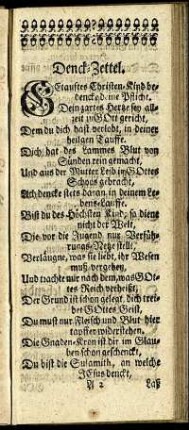 Denck-Zettel.
Getauftes Christen-Kind be-
dencke deine Pflicht,
Dein gantes Hertze sey all-
zeit in GOtt gericht,
Dem du dich hast verlobt, in deiner
heiligen Tauffe.
Dich hat des Lammes Blut von
Sünden rein gemacht,
Und aus der Mutter Leib in GOttes
Schoos gebracht,
Ach dencke stets daran in deinem Le-
bens-Lauffe.
Bist du des Höchsten Kind, so diene
nicht der Welt,
Die vor die Jugend nur Verfüh-
rungs-Netze stellt,
Verläugne, was sie liebt, ihr Wesen
muß vergehen,
Und trachte nur nach dem, was GOt-
tes Reich verheißt,
Der Grund ist schon gelegt, dich trei-
bet GOttes Geist,
Du must nur Fleisch und Blut hier
tapffer widerstehen.
Die Gnaden-Kron ist dir im Glau-
ben schon geschenckt,
Du bist die Sulamith, an welche
JEsus denckt,
A 2 Laß